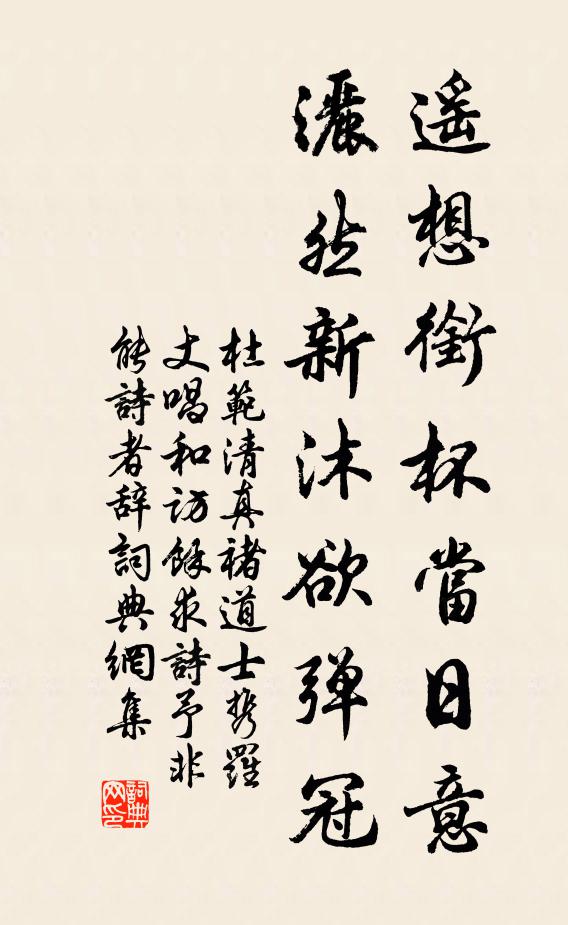 遥想銜杯當日意
灑然新沐欲弹冠
杜範清真褚道士携羅
丈唱和訪餘求詩予非
能詩者辞詞典網集
詞典
网印